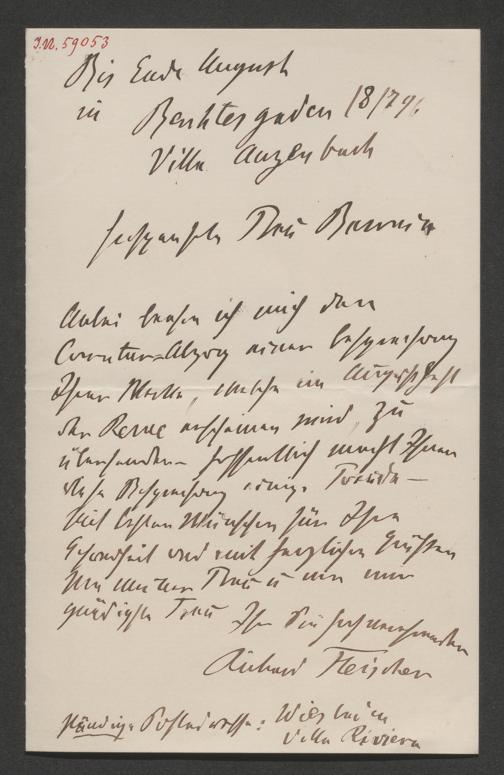 I.N. 59053
Bis Ende August
in Berchtesgaden 18/7 96
Villa Anzenbach
Hochverehrte Frau Baronin
Anbei beehre ich mich den
Correctur-Abzug einer Besprechung
Ihrer Werke, welche im Augustheft
der Revue erscheinen wird, zu
übersenden. Hoffentlich macht Ihnen
diese Besprechung einige Freude –
Mit besten Wünschen für Ihre
Gesundheit und mit herzlichen Grüßen
von meiner Frau u von mir
gnädigste Frau Ihr Sie hochverehrender
Richard Fleischer
Ständige Postadresse: Wiesbaden
Villa Riviera